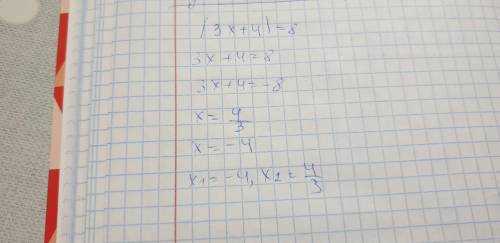 |3x+4|=8
3x+4=8
3x+4=-8
x=4/3
x=-4
x1=-4, x2=4/3